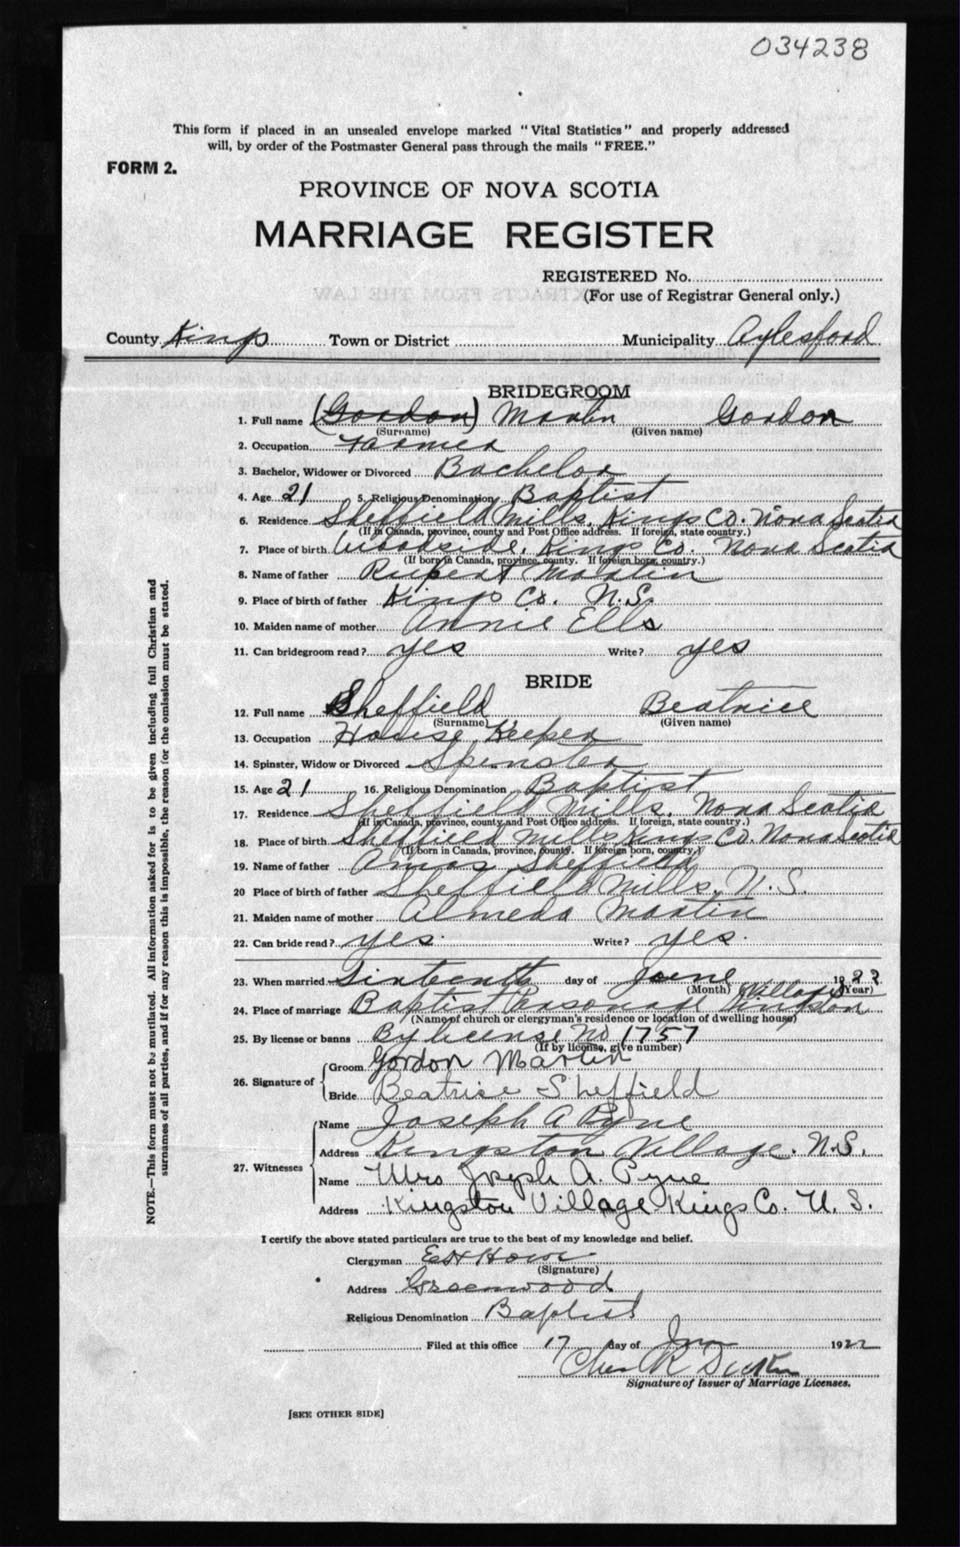 034238
This form if placed in an unsealed envelope marked "Vital Statistics" and properly addressed
will, by order of the Postmaster General pass through the mails "FREE."
FORM 2.
PROVINCE OF NOVA SCOTIA
MARRIAGE REGISTER
REGISTERED No.
(For use of Registrar General only.)
County Kings Town or District Municipality Aylesford
BRIDEGROOM
1. Full name (Gordon) Martin Gordon
(Surname) (Given name)
2. Occupation Farmer
3. Bachelor, Widower or Divorced Bachelor
4. Age 21 5. Religious Denomination Baptist
6. Residence Sheffield Mills, Kings Co. Nova Scotia
(If in Canada, province, county and Post Office address. If foreign, state country.)
7. Place of birth Woodside, Kings Co. Nova Scotia
(If born in Canada, province, county. If foreign born, country.)
8. Name of father Rupert Martin
9. Place of birth of father Kings Co. N.S.
10. Maiden name of mother Annie Ells
11. Can bridegroom read? yes Write? yes
BRIDE
12. Full name Sheffield Beatrice
(Surname) (Given name)
13. Occupation House Keeper
14. Spinster, Widow or Divorced Spinster
15. Age 21 16. Religious Denomination Baptist
17. Residence Sheffield Mills, Nova Scotia
(If in Canada, province, county and Post Office address. If foreign, state country.)
18. Place of birth Sheffield Mills Kings Co. Nova Scotia
(If born in Canada, province, county. If foreign born, country.)
19. Name of father Amos Sheffield
20 Place of birth of father Sheffield Mills, N.S.
21. Maiden name of mother Almeda Martin
22. Can bride read? yes. Write? yes.
23. When married Sixteenth day of June 1922
(Month) (Year)
24. Place of marriage Baptist Parsonage Kingston Village
(Name of church or clergyman's residence or location of dwelling house)
25. By license or banns By license No 1757
(If by license, give number)
26. Signature of Groom Gordon Martin
Bride Beatrice Sheffield
27. Witnesses Name Joseph A Pyne
Address Kingston Village. N.S.
Name Mrs Joseph A. Pyne
Address Kingston Village Kings Co. N. S.
I certify the above stated particulars are true to the best of my knowledge and belief.
Clergyman
(Signature)
Address Greenwood
Religious Denomination Baptist
Filed at this office 17 day of June 1922
Chas R
Signature of Issuer of Marriage Licenses.
[SEE OTHER SIDE]
NOTE.—This form must not be mutilated. All information asked for is to be given including full Christian and
surnames of all parties, and if for any reason this is impossible, the reason for the omission must be stated.